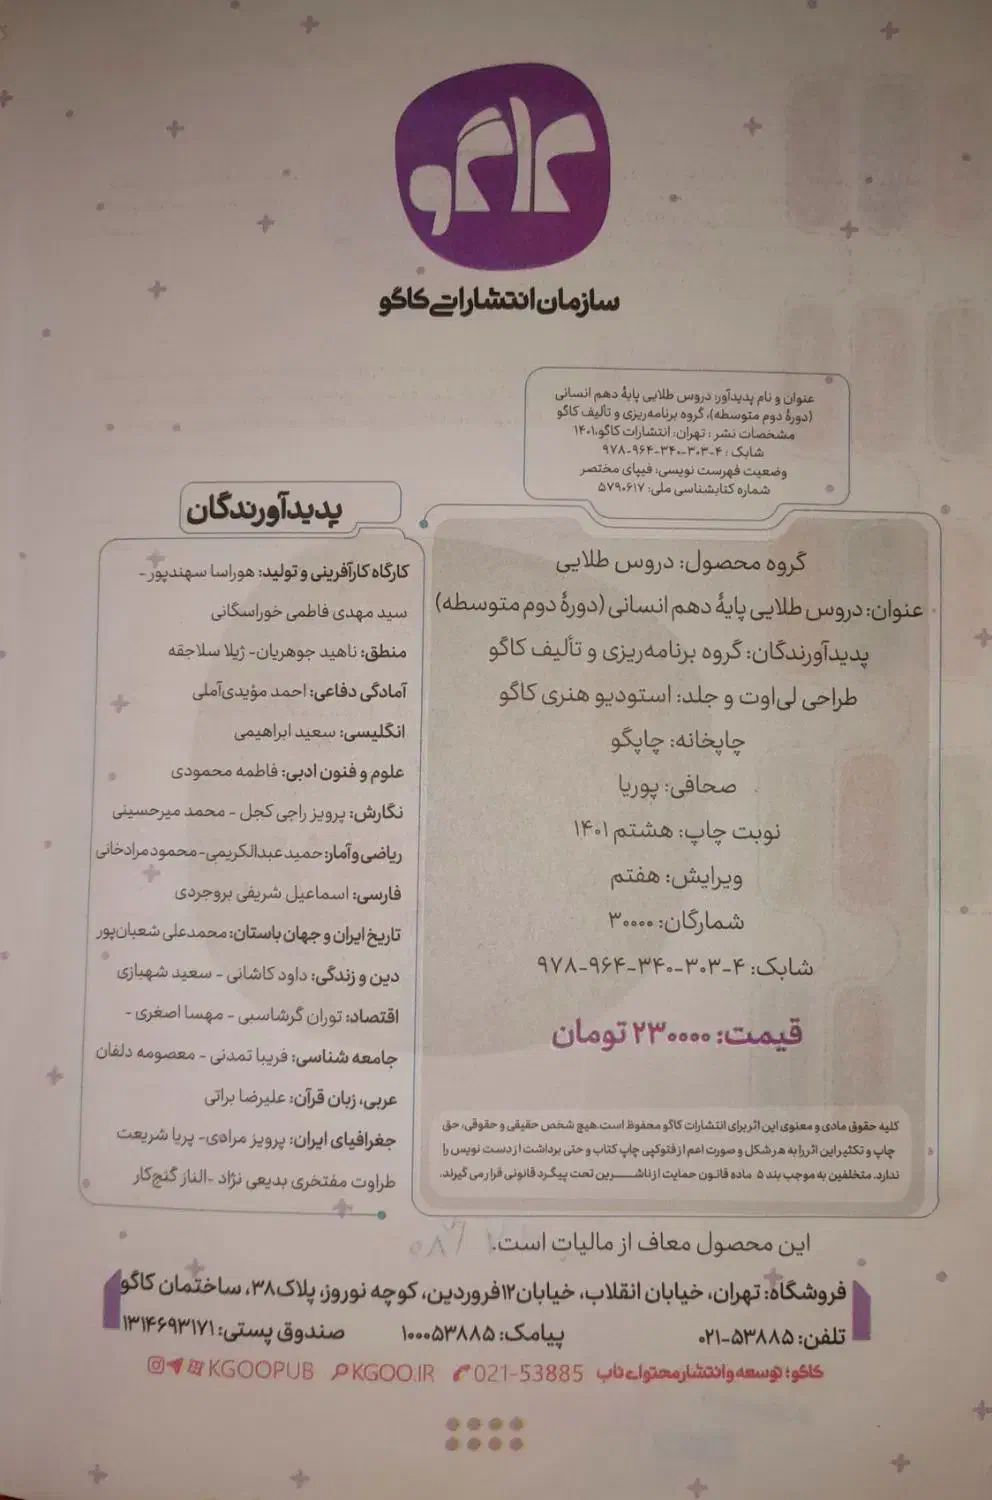 کاگو
سازمان انتشاراتی کاگو
عنوان و نام پدیدآور: دروس طلایی پایهٔ دهم انسانی
(دورهٔ دوم متوسطه)، گروه برنامه‌ریزی و تألیف کاگو
مشخصات نشر : تهران: انتشارات کاگو،۱۴۰۱
شابک : ۴-۳۰۳-۳۴۰-۹۶۴-۹۷۸
وضعیت فهرست نویسی: فیپای مختصر
شماره کتابشناسی ملی: ۵۷۹۰۶۱۷
گروه محصول: دروس طلایی
عنوان: دروس طلایی پایهٔ دهم انسانی (دورهٔ دوم متوسطه)
پدیدآورندگان: گروه برنامه‌ریزی و تألیف کاگو
طراحی لی‌اوت و جلد: استودیو هنری کاگو
چاپخانه: چاپگو
صحافی: پوریا
نوبت چاپ: هشتم ۱۴۰۱
ویرایش: هفتم
شمارگان: ۳۰۰۰۰
شابک: ۴-۳۰۳-۳۴۰-۹۶۴-۹۷۸
قیمت: ۲۳۰۰۰۰ تومان
کلیه حقوق مادی و معنوی این اثر برای انتشارات کاگو محفوظ است.هیچ شخص حقیقی و حقوقی، حق
چاپ و تکثیر این اثر را به هر شکل و صورت اعم از فتوکپی چاپ کتاب و حتی برداشت از دست نویس را
ندارد. متخلفین به موجب بند ۵ ماده قانون حمایت از ناشرین تحت پیگرد قانونی قرار می گیرند.
پدیدآورندگان
کارگاه کارآفرینی و تولید: هوراسا سهندپور -
سید مهدی فاطمی خوراسگانی
منطق: ناهید جوهریان- ژیلا سلاجقه
آمادگی دفاعی: احمد مؤیدی‌آملی
انگلیسی: سعید ابراهیمی
علوم و فنون ادبی: فاطمه محمودی
نگارش: پرویز راجی کجل - محمد میرحسینی
ریاضی و آمار: حمید عبدالکریمی-محمود مرادخانی
فارسی: اسماعیل شریفی بروجردی
تاریخ ایران و جهان باستان: محمدعلی شعبان‌پور
دین و زندگی: داود کاشانی - سعید شهبازی
اقتصاد: توران گرشاسبی - مهسا اصغری -
جامعه شناسی: فریبا تمدنی - معصومه دلفان
عربی، زبان قرآن: علیرضا براتی
جغرافیای ایران: پرویز مرادی- پریا شریعت
طراوت مفتخری بدیعی نژاد -الناز گنج‌کار
این محصول معاف از مالیات است.
فروشگاه: تهران، خیابان انقلاب، خیابان۱۲فروردین، کوچه نوروز، پلاک۳۸، ساختمان کاگو
تلفن: ۵۳۸۸۵-۰۲۱ پیامک: ۱۰۰۰۵۳۸۸۵ صندوق پستی: ۱۳۱۴۶۹۳۱۷۱
کاگو؛ توسعه و انتشار محتوای ناب 021-53885 KGOO.IR KGOOPUB